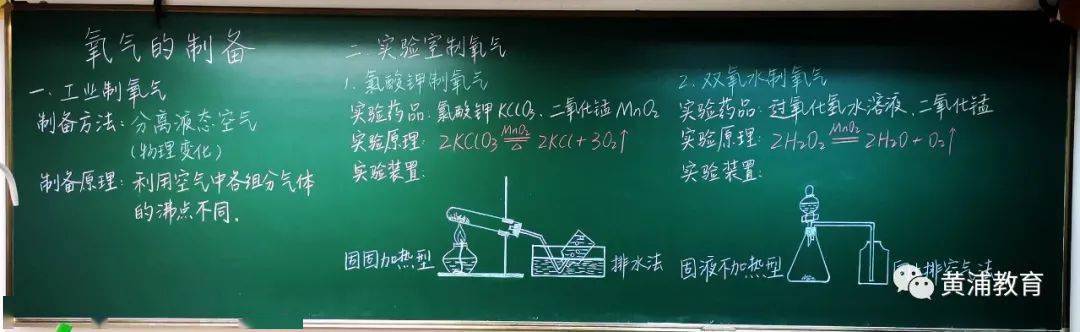 氧气的制备
一.工业制氧气
制备方法:分离液态空气
(物理变化)
制备原理:利用空气中各组分气体
的沸点不同.
二.实验室制氧气
1.氯酸钾制氧气
实验药品:氯酸钾KClO3、二氧化锰MnO2
实验原理:2KClO3 MnO2 ══ △ 2KCl+3O2↑
实验装置:
固固加热型
排水法
2.双氧水制氧气
实验药品:过氧化氢水溶液、二氧化锰
实验原理:2H2O2 MnO2 ══ 2H2O+O2↑
实验装置:
固液不加热型
排空气法
黄浦教育